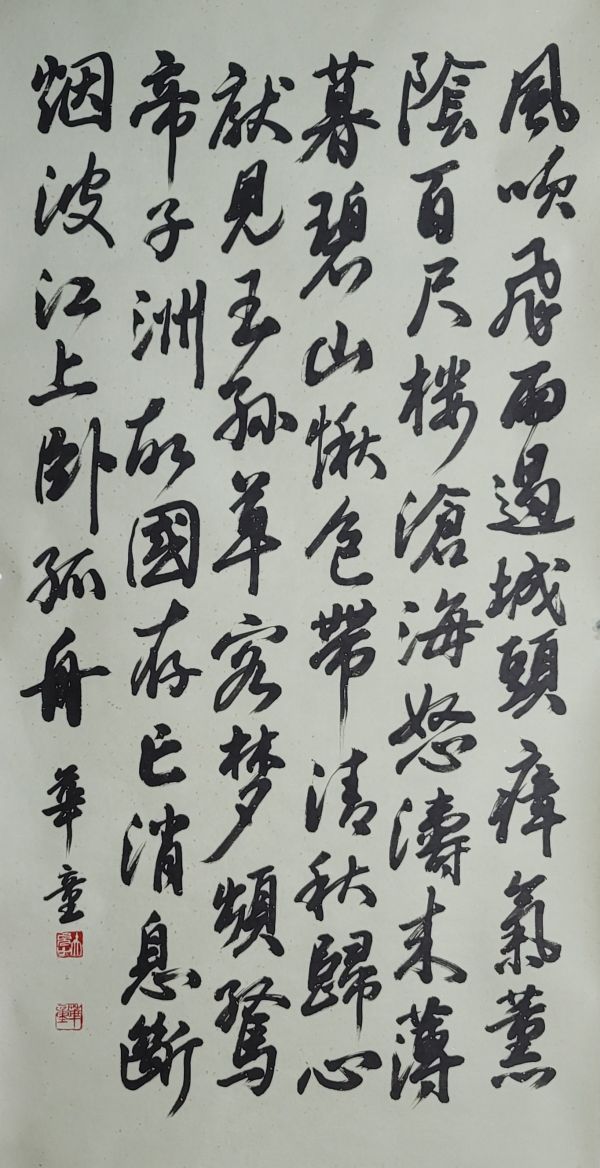 風吹飛雨過城頭瘴氣薰
陰百尺樓滄海怒濤来薄
暮碧山愀色帶清秋歸心
猒見王孫草客梦頻驚
帝子洲故國存亡消息斷
烟波江上卧孤舟
華童